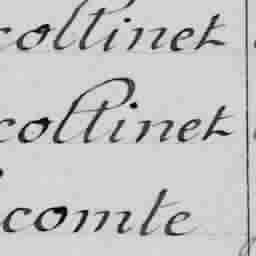 collinet
collinet
comte